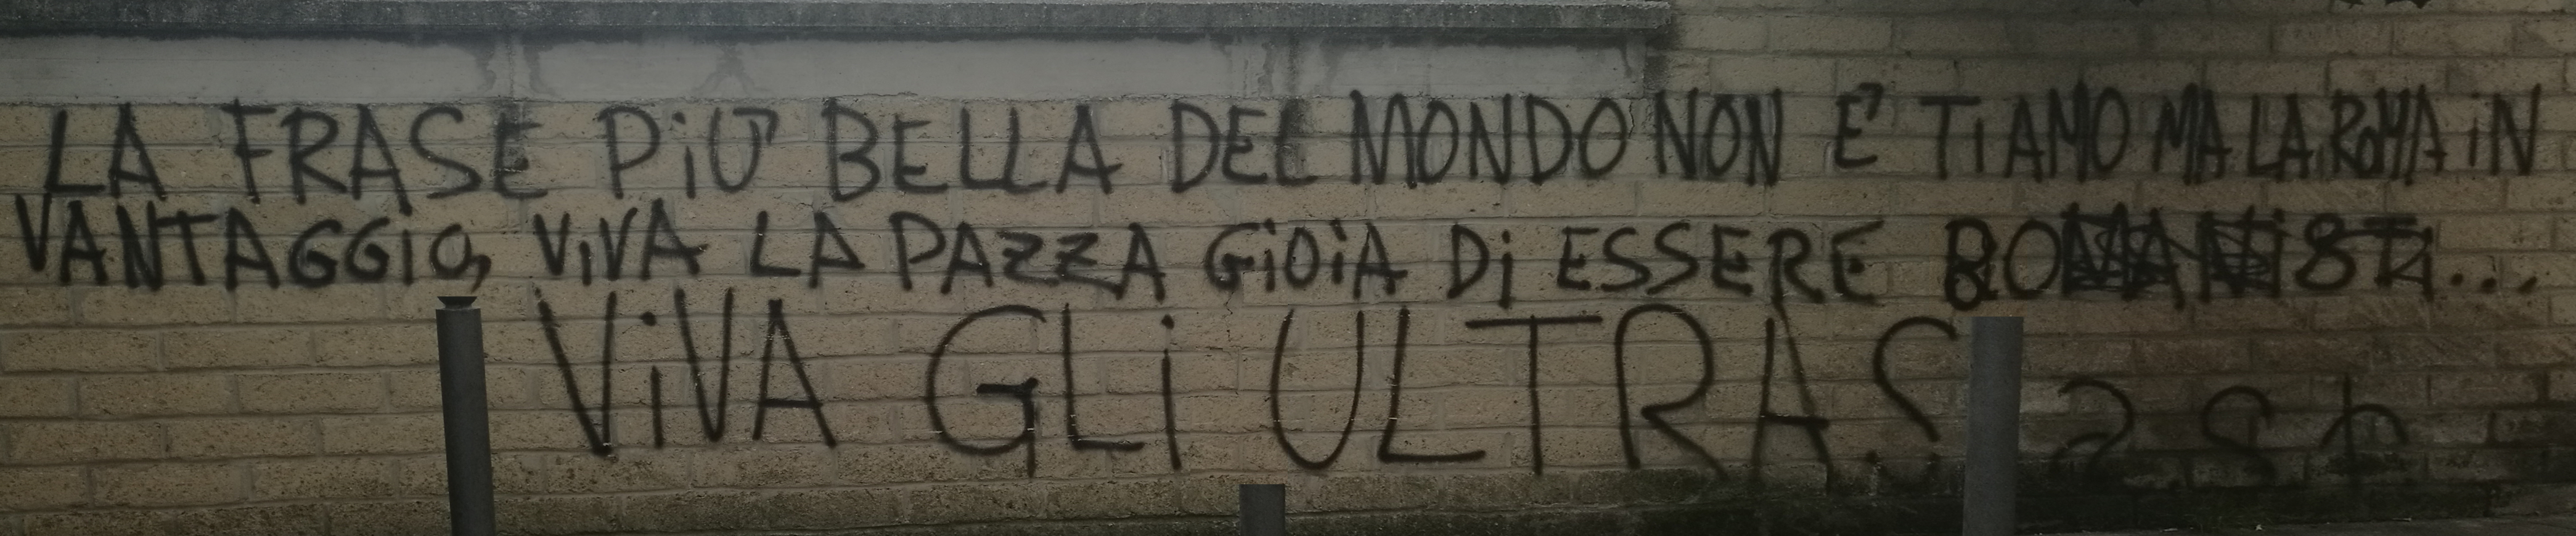 LA FRASE PiÙ BELLA DEL MONDO NON È Ti AMO MA LA ROMA iN
VANTAGGiO, ViVA LA PAZZA GiOiA Di ESSERE
ViVA GLi ULTRAS